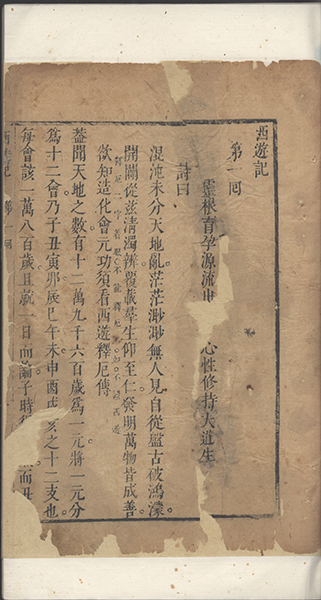 西遊記
第一囘
靈根育孕源流出 心性修持大道生
詩曰
混沌未分天地亂茫茫渺渺無人見自從盤古破鴻濛
開闢從茲清濁辨覆載羣生仰至仁發明萬物皆成善
欲知造化會元功須看西遊釋厄傳
蓋聞天地之數有十二萬九千六百歲爲一元將一元分
爲十二會乃子丑寅卯辰巳午未申酉戌亥之十二支也
每會該一萬八百歲且就一日而論子時得 而丑